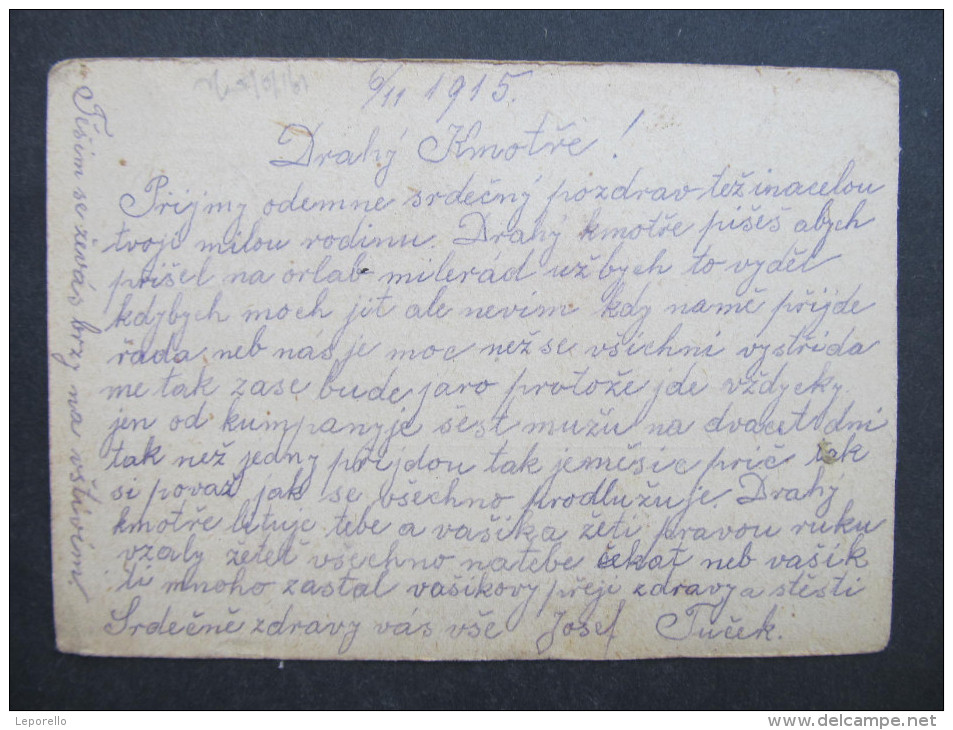 6/11 1915.
Drahý Kmotře!
Prijmy odemne srdečný pozdrav též inacelou
tvoji milou rodinu. Drahý kmotře pišeš abych
prišel na orlab milerád užbych to vyděl
kdybych moch jit ale nevim kdy namě přijde
řada neb nás je moc než se všichni vystřida
me tak zase bude jaro protože jde vždycky
jen od kumpanyje šest mužu na dvacet dní
tak než jedny přijdou tak je měsic prič tak
si považ jak se všechno prodlužuje. Drahý
kmotře lituje tebe a vašika žeti pravou ruku
vzaly zeteť všechno natebe čekat neb vašik
ti mnoho zastal vašikovy přeji zdravy a stěsti
Srdečně zdravy vás vše Josef Tuček.
Těšim se že vás brzy na vštivime
Leporello
delcampe.net